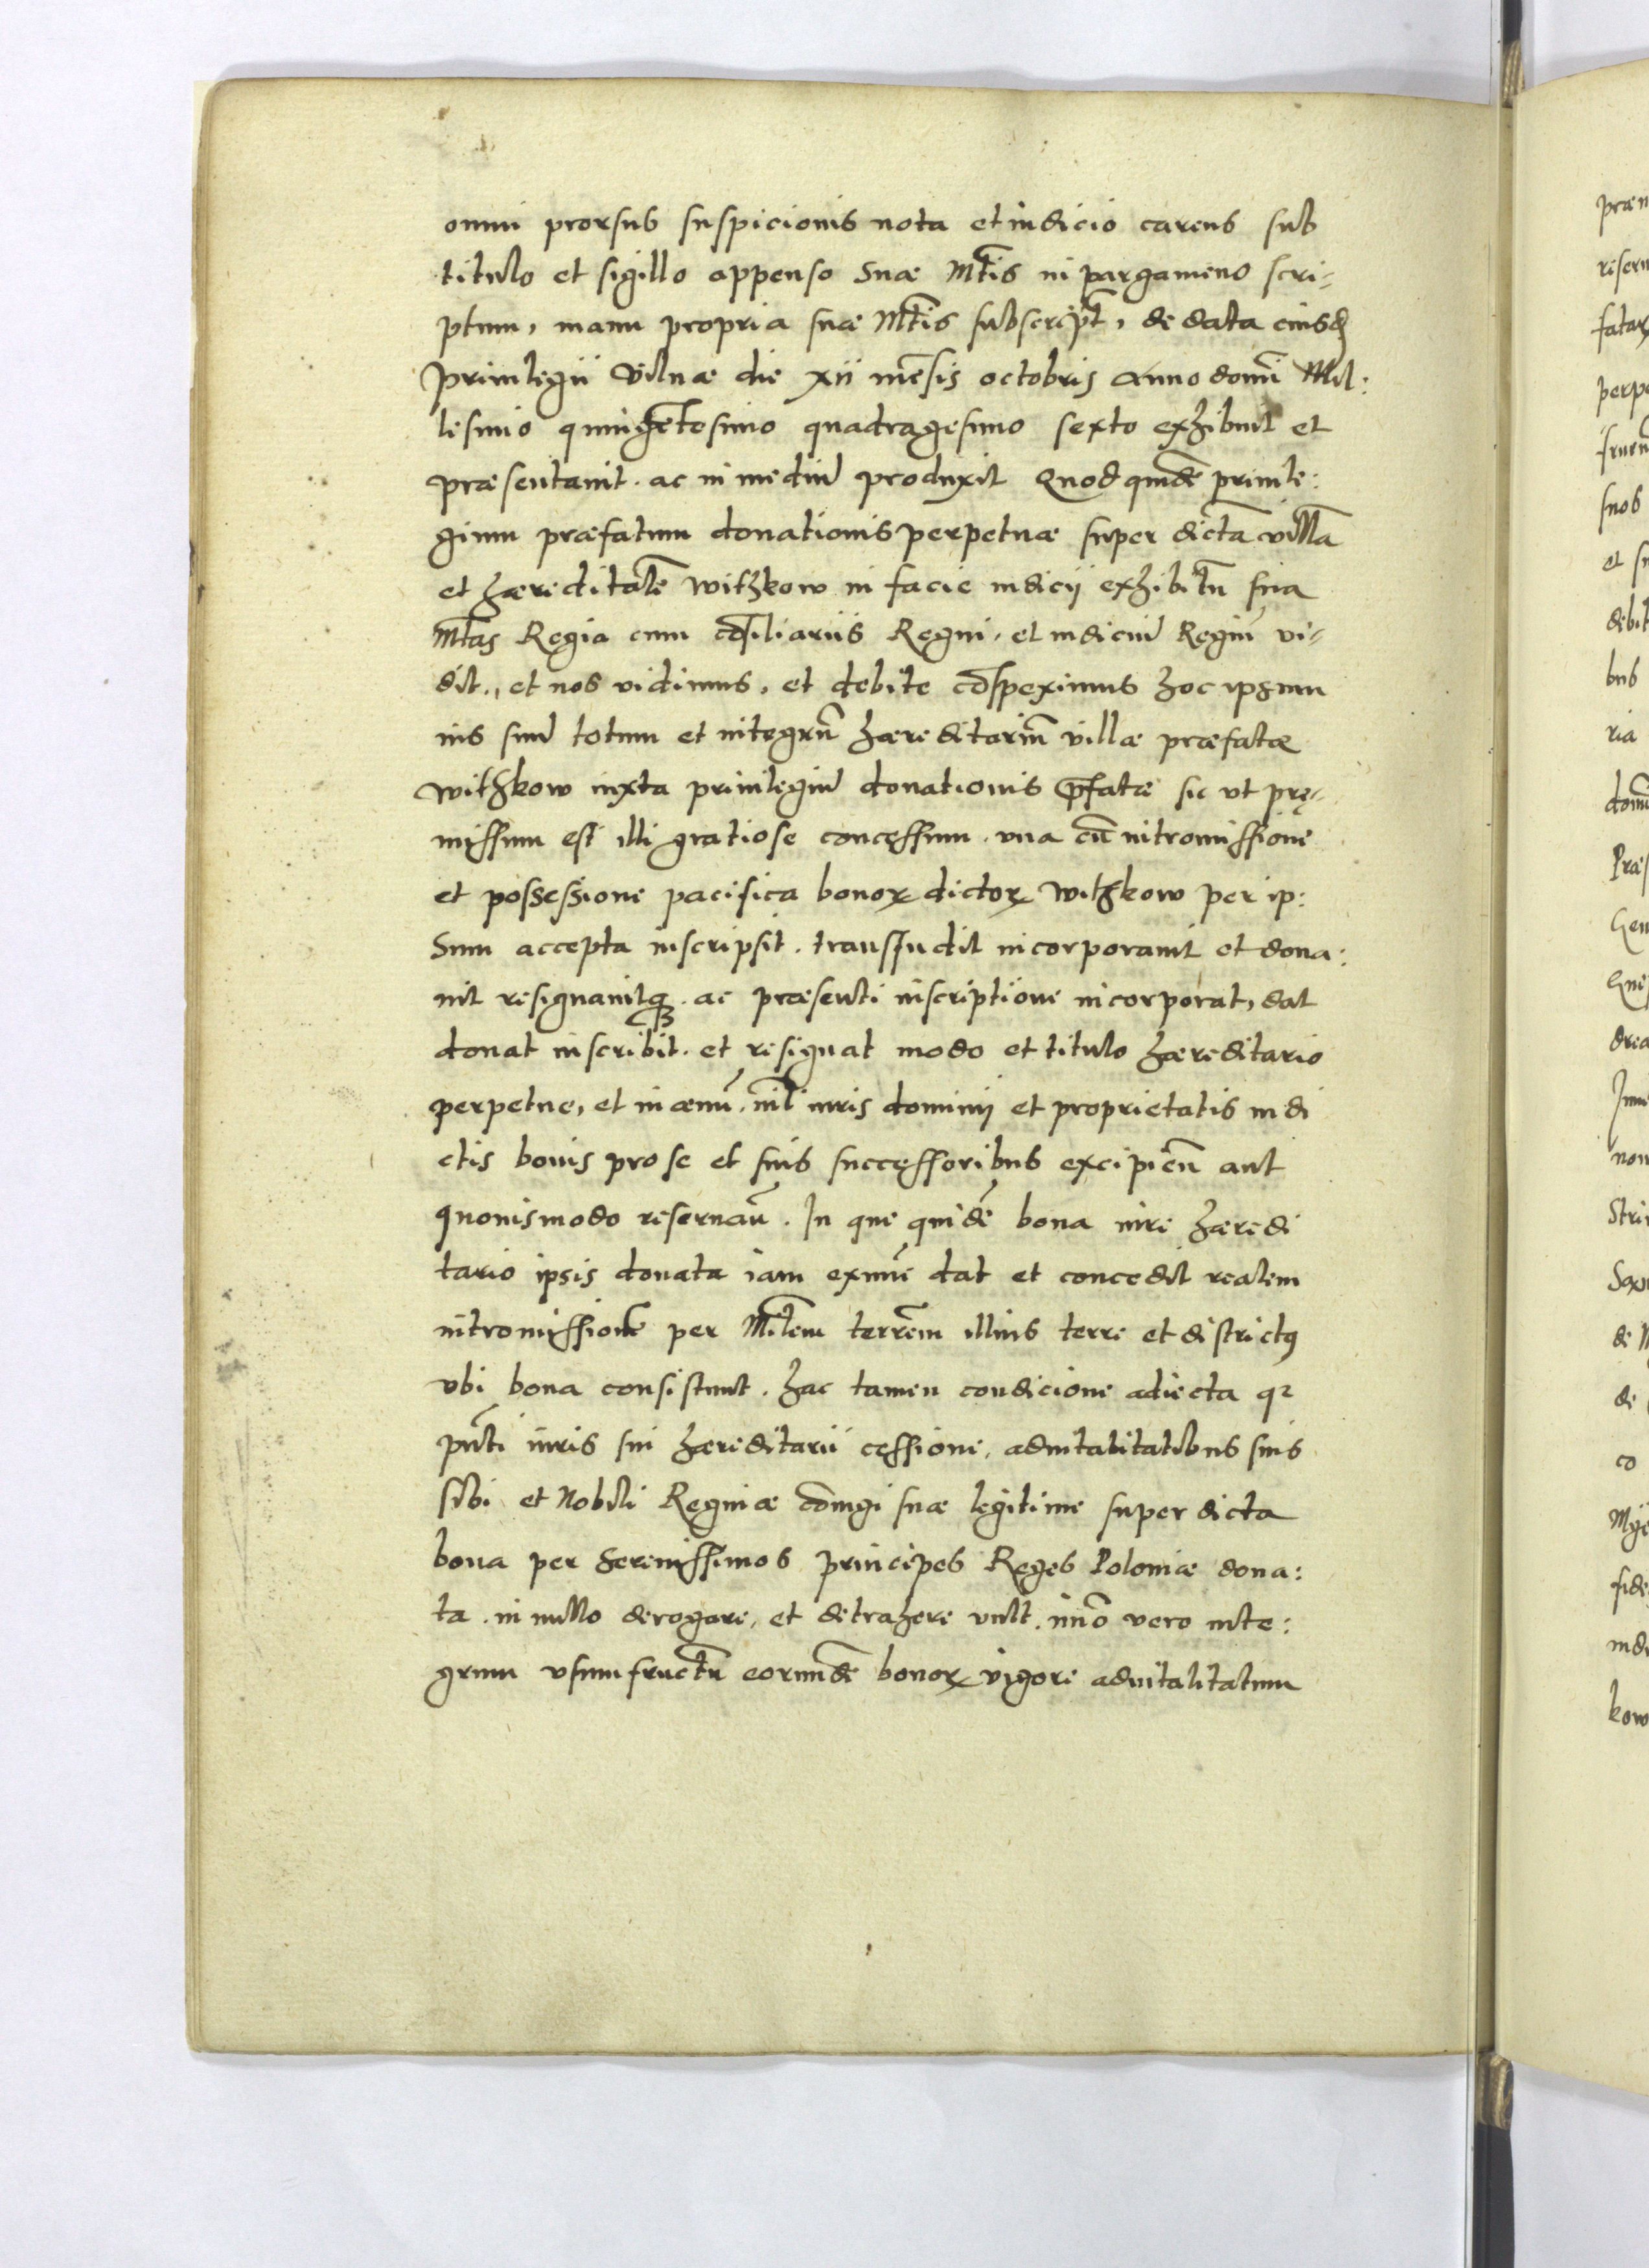 omni prorsus suspicionis nota et indicio carens sub
titulo et sigillo appenso Suæ Mt̃is in pargameno scri-
ptum, manu propria suæ Mt̃is subscript̃, de data eiusdꝫ
priuilegii Vilnæ die xii mẽsis octobris Anno domĩ Mil:
lesimo quingẽtesimo quadragesimo sexto exhibuit et
præsentauit. ac in mediũ produxit Quod quidẽ priuile:
gium præfatum donationis perpetuæ super dictã villã
et hæreditatẽ Withkow in facie iudicij exhibitũ sua
Mt̃as Regia cum cõsiliariis Regni, et iudiciũ Regiũ vi-
dit., et nos vidimus, et debite cõspeximus hoc ipsum
ius suũ totum et integrũ hæreditariũ villæ præfatæ
Withkow iuxta priuilegiũ donationis p̃fatæ sic ut prę-
missum est illi gratiose concęssum. vna cũ intromissione
et possessione pacifica bonoꝝ dictoꝝ Withkow per ip:
sum accepta inscripsit. transfudit incorporauit et dona:
uit resignauitqꝫ. ac præsenti inscriptione incorporat, dat
donat inscribit. et resignat modo et titulo hæreditario
perpetue, et in æuũ. nil̃ iuris dominij et proprietatis in di
ctis bonis pro se et suis succęssoribus excipieñ aut
quouismodo reseruañ. In que quidẽ bona iure hæredi
tario ipsis donata iam exnũc dat et concedit realem
intromissionẽ per Ml̃tem terrẽm illius terre et districtꝰ
vbi bona consistunt. hac tamen condicione adiecta qꝛ
pñti iuris sui hæreditarii cęssione, aduitalitatibus suis
sibi et Nobili Reginæ cõiugi suæ legitime super dicta
bona per serenissimos principes Reges Poloniæ dona:
ta. in nullo derogare, et detrahere vult. im̃o vero inte:
grum vsumfructũ eorundẽ bonoꝝ vigore aduitalitatum